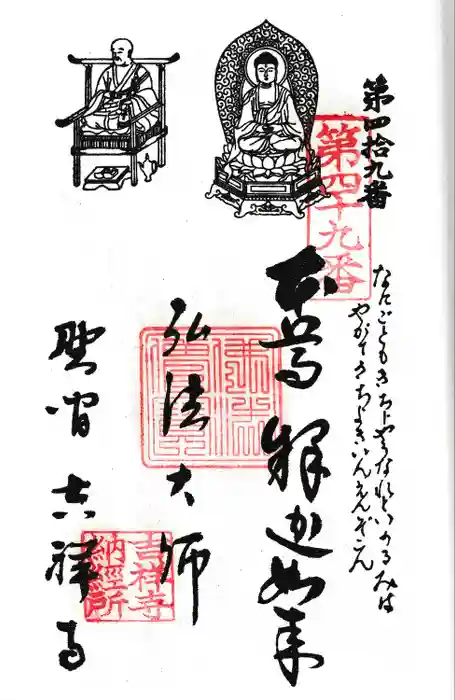 第四拾九番
第四十九番
なにごともきちじやうなれといのるみは
やがてきちよきいんえんぞこん
本尊 釋迦如来
弘法大師
野間 吉祥寺
吉祥寺
納經所